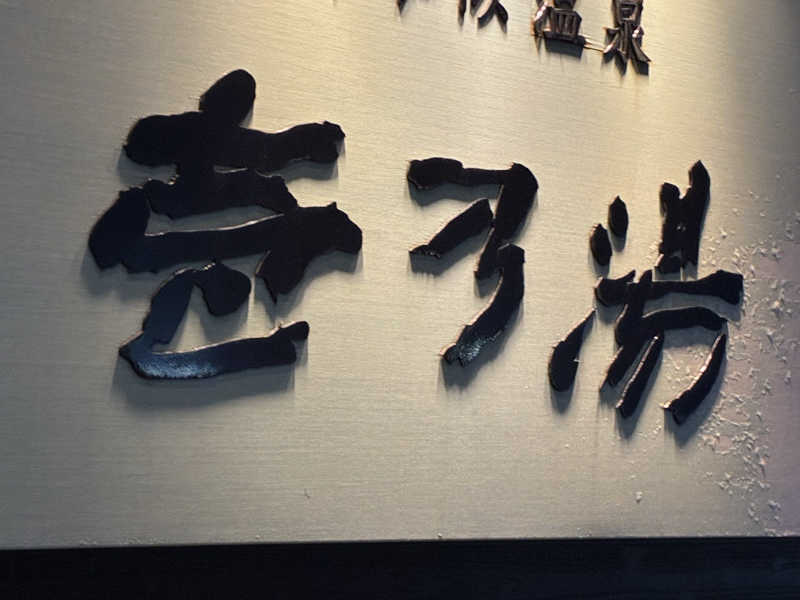 温泉
壱乃湯